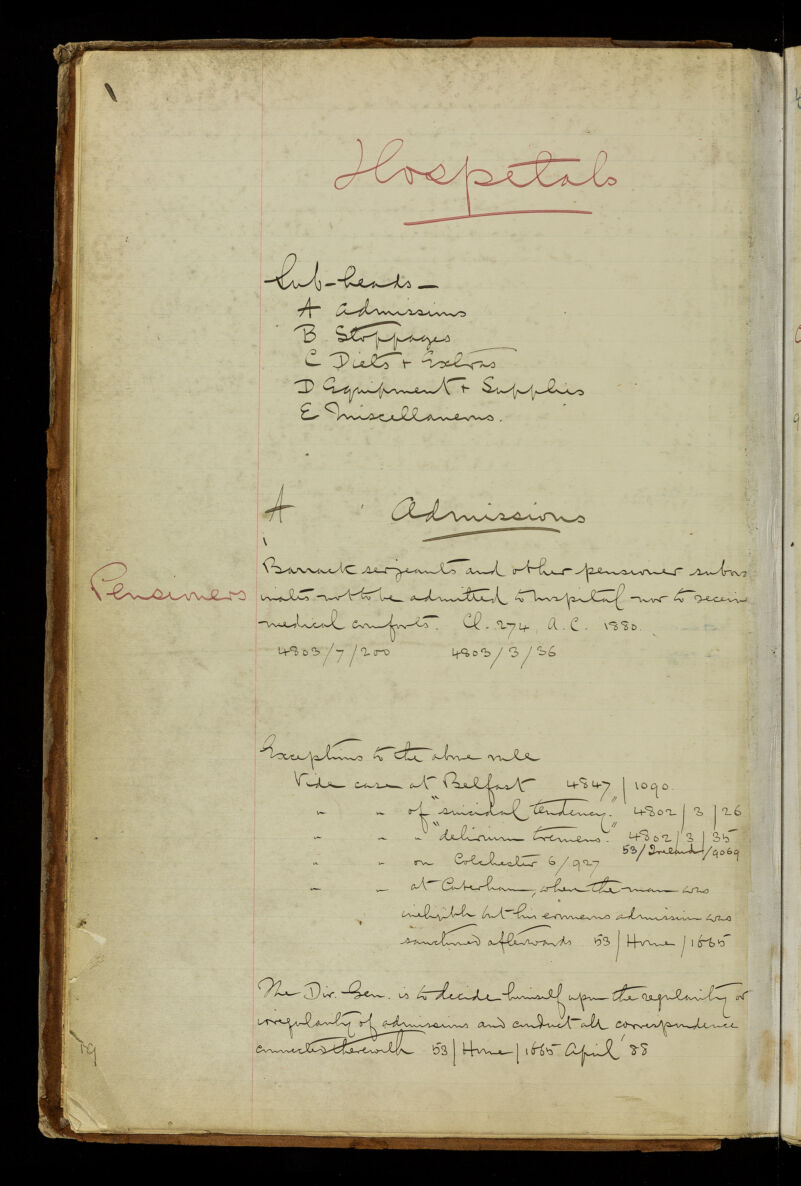 1
Hospitals
Sub-heads —
A Admissions
B Stoppages
C Diets + Extras
D Equipment + Supplies
E Miscellaneous.
A Admissions
Pensioners
Barrack serjeants and other pensioner subor
inates not to be admitted to hospital nor to receive
medical comforts. Cl. 274, A.C. 1880.
4803/7/200 4803/3/36
Exceptions to the above rule
Vide case at Belfast 4847/1090.
" " of "suicidal tendency." 4802/3/26
" " " "delirium tremens." 4802/3/35
53/Ireland/9069
" " on Colchester 6/927
" " at Caterham, when the man was
ineligible but his erroneous admission was
sanctioned afterwards 53/Home/1665
The Dir. Gen. is to decide himself upon the regularity or
irregularity of admissions and conduct all correspondence
connected therewith 53/Home/1665 April '88